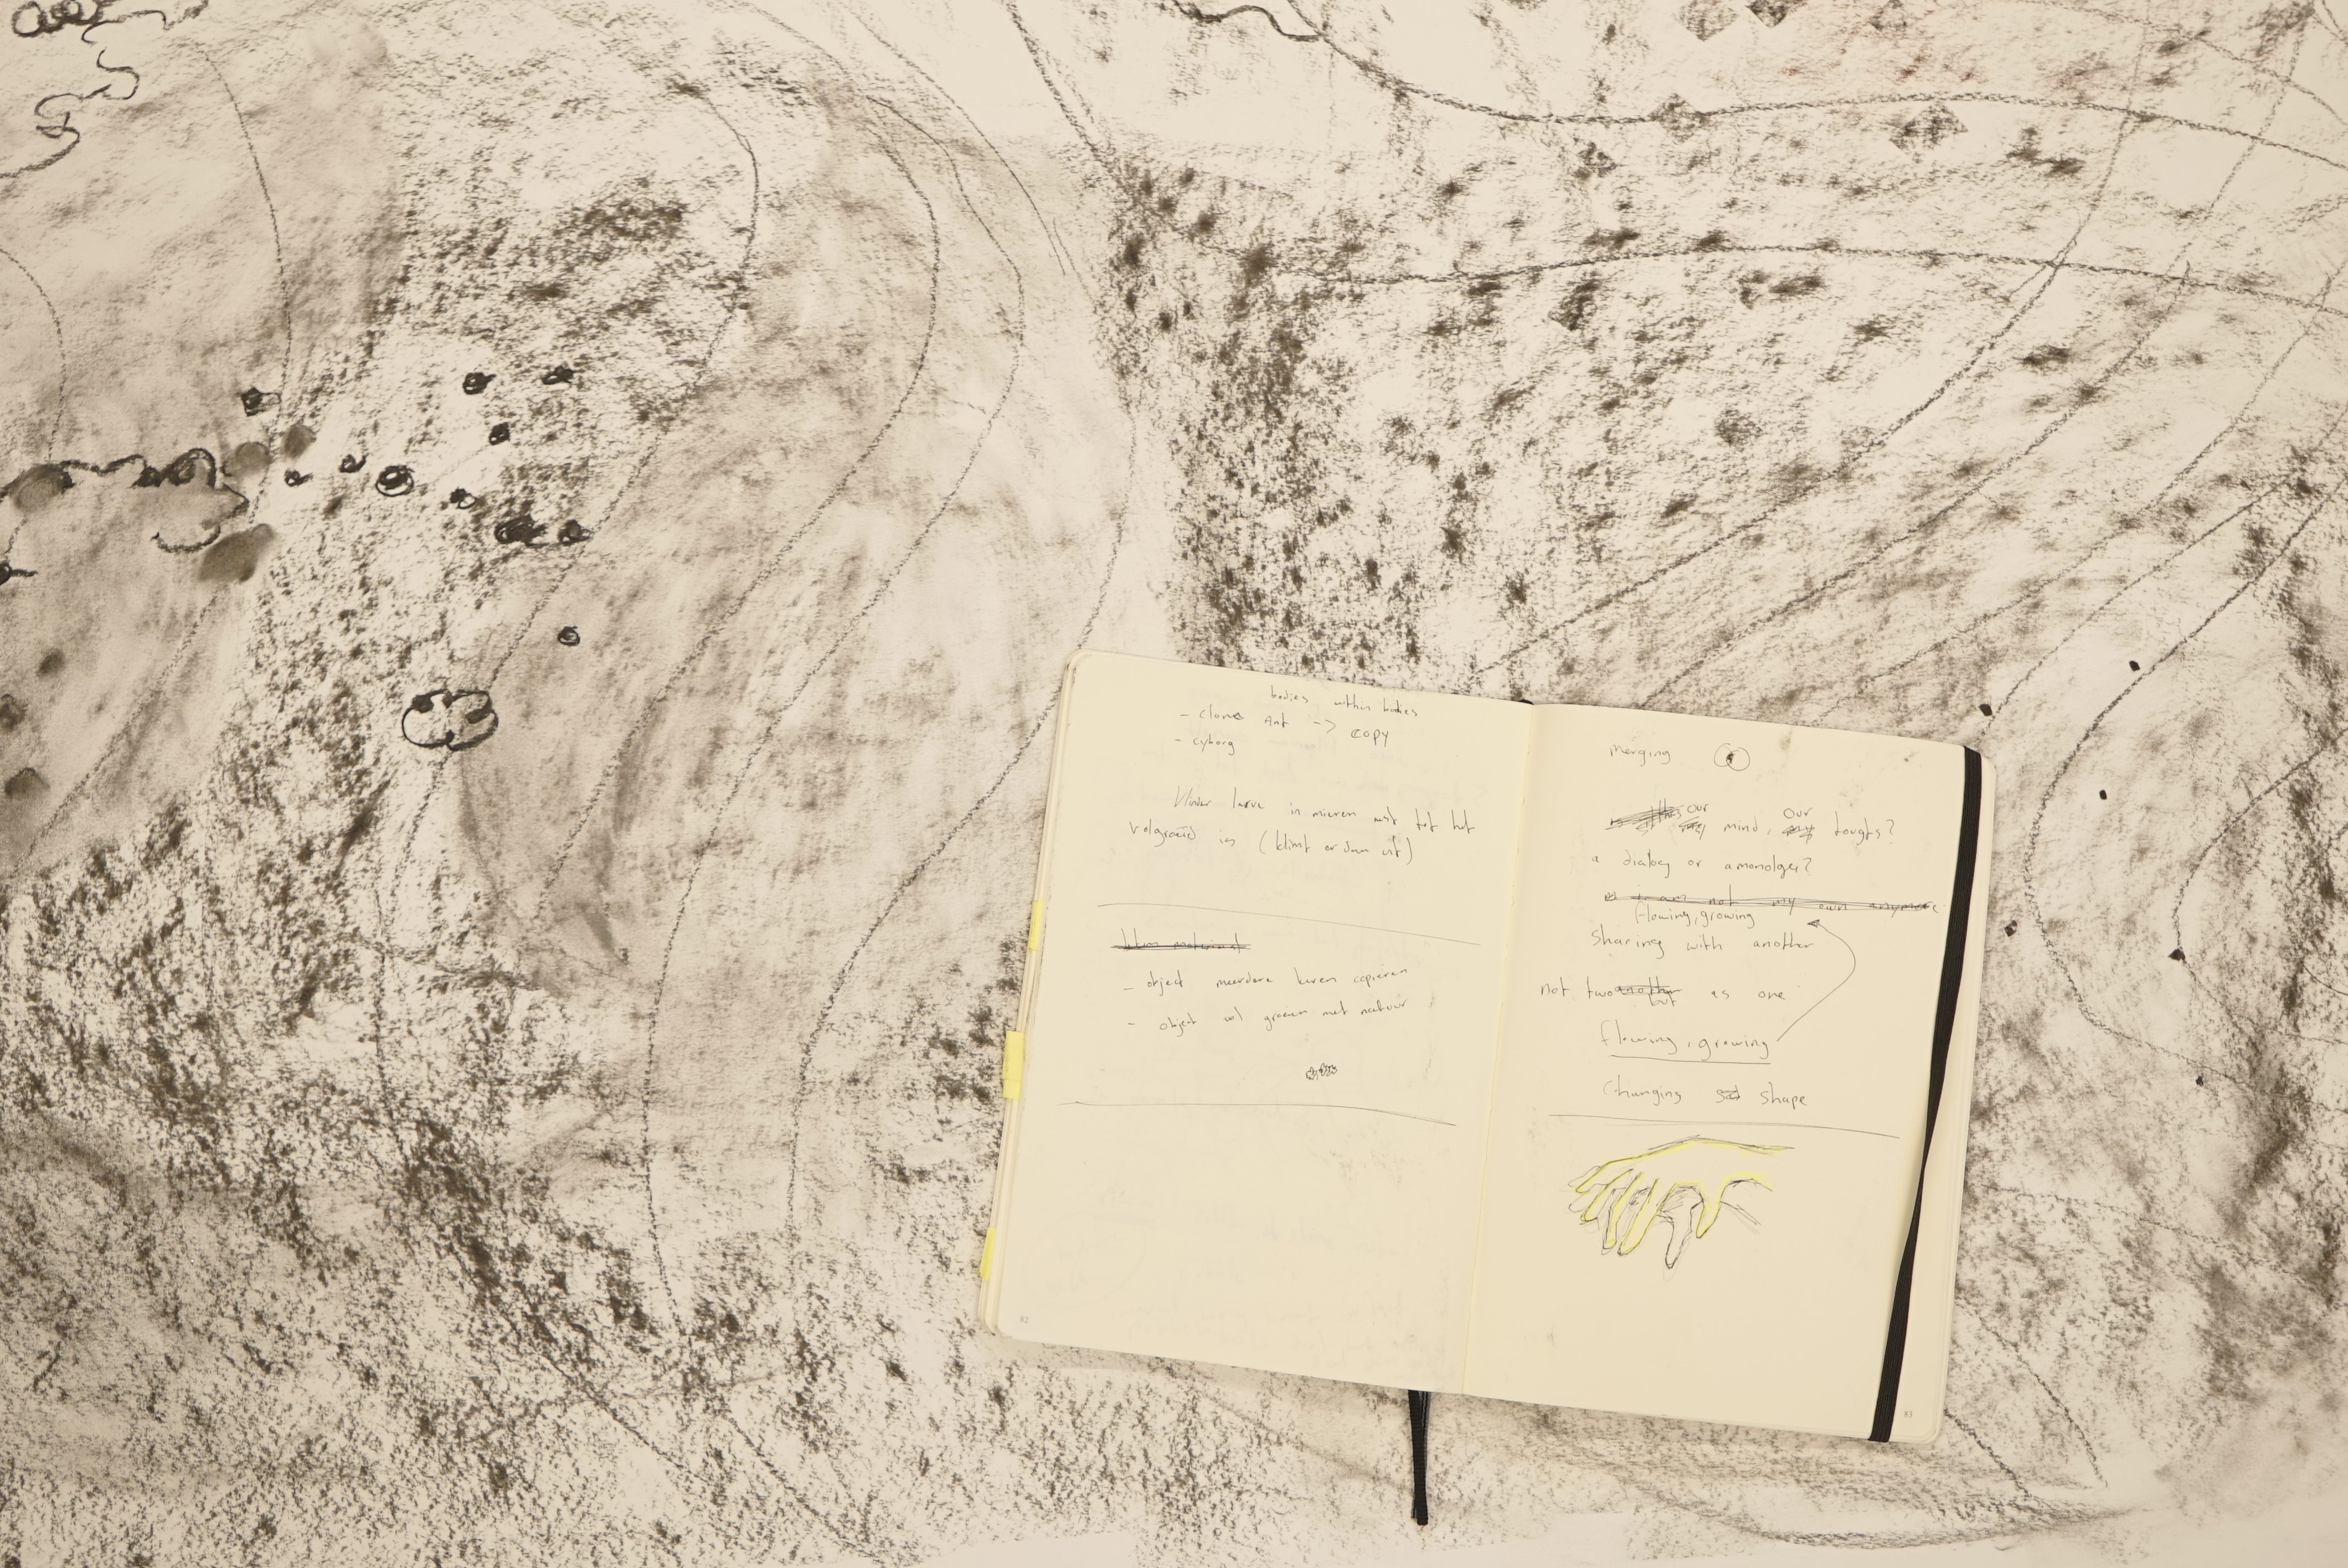 bodies within bodies
- clone ant -> copy
- cyborg
Vlinder larve in mieren nest tot het
volgroeid is (klimt er dan uit)
- object meerdere keren copieren
- object vol groeien met natuur
82
merging
our mind, our toughts?
a dialog or a monolger?
i am not my own anymore
flowing, growing
Sharing with another
not two but as one
flowing, growing
Changing shape
83